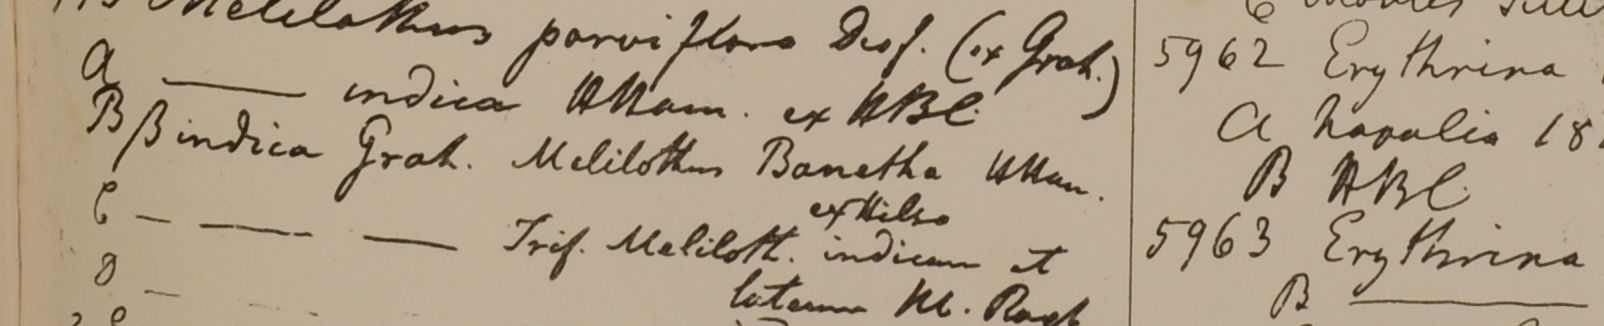 Melilothus parviflora Desf. (ex Grah.)
A ——— indica HHam. ex HBC
B β indica Grah. Melilothus Banetha HHam.
C — — — Trif. Meliloth. indicum et
luteum M. Roxb
D —
5962 Erythrina
A Napalia 18
B HBC
5963 Erythrina
B ———